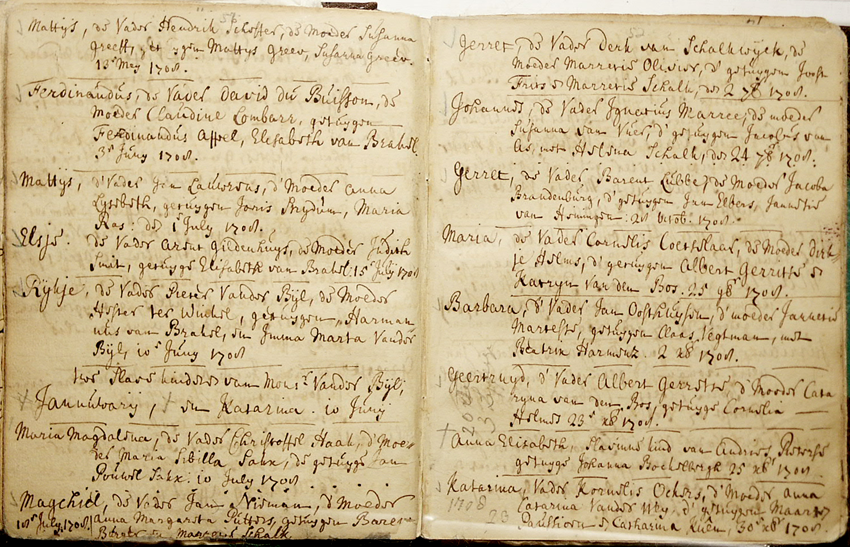 Mattys, de Vader Hendrik Scheffer, de Moeder Susanna
Greeff, get :gen Mattys Greev, Susanna Greev.
13 Mey 1708.
Ferdinandus, de Vader david du Buisson, de
Moeder Claudine Lombarr, getuygen
Ferdinandus Appel, Elisabeth van Brakel
3e Juny 1708.
Mattys, d'Vader Jan Lauwerens, d'Moeder anna
Lysebeth, getuygen Joris Brydum, Maria
Ras: de 1e July 1708.
Elsje. de Vader arent Gildenhuys, de Moeder Judith
Smit, getuyge Elisabeth van Brakel 15 July 1708
Rykje, de Vader Pieter Vander Byl, de Moeder
Hester ter Winkel, getuygen, Harman
van Brakel, en Emma Marta Vander
Byl, 10e Juny 1708
twe Slave kinderen van Monsr Vander Byl;
+ Januwary, + en Katarina. 10 Juny
Maria Magdalena, de Vader Christoffel Haak, d'Moe-
der Maria Sibilla Sax, de getuyge Jan
Pouwel Sax: 10 July 1708
Magchiel, de Vader Jan Niemann, d'Moeder
10e July 1708 Anna Margareta Putters, getuygen Barent
Schalk
Gerret, de Vader Derk van Schalkwyck, de
Moeder Marretie Olivier, d' getuygen Joost
Frits en Marretie Schalk, den 2 7b 1708.
Johannes, de Vader Ignatius Marree, de moeder
Susanna van Vuer, d' getuygen Jacobus van
As, met Helena Schalk, den 24 7b 1708.
Gerret, de Vader Barent Lubbe, de Moeder Jacoba
Brandenburg, d'getuygen Jan Elbers, Jannetie
van Heiningen: 28 octob. 1708.
Maria, de Vader Cornelis Coettelaar, de Moeder Dirk-
je Helms, d'getuygen Albert Gerritse en
Katryn Van den Bos. 25e 9b 1708.
Barbara, d'Vader Jan Oosthuysen, d'moeder Jannetie
Martesse, getuygen Claas Vegtman, met
Beatrix Harmensz. 2 xb 1708.
Geertruyd, d'Vader Albert Gerretse, d'Moeder Cata
ryna van den Bos, getuyge Cornelia
Helmes 23e xb 1708.
+ Anna Elizabeth, Slavinne kind van Andries Pieterse
getuyge Johanna 25 xb 1708
Katarina, Vader Kornelis Ockers, d'Moeder anna
1708 Catarina Vander Wey, d'getuygen Maarten
en Catharina 30e xb 1708.